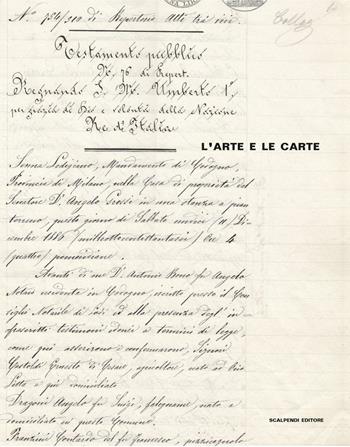 N.° 754/310 di Repertorio Atti tra vivi.
Testamento pubblico
N. 76 di Repert.
Regnando S. M. Umberto 1°
per grazia di Dio e volontà della Nazione
Re d'Italia
L'ARTE E LE CARTE
Senna Lodigiana, Mandamento di Codogno,
Provincia di Milano, nella Casa di proprietà del
Senatore D.r Angelo Grossi in una stanza a pian
terreno, questo giorno di Sabbato undici (11) Di-
cembre 1886 (milleottocentottantasei) Ore 4
(quattro) pomeridiane.
Avanti di me D.r Antonio Bono fu Angelo
Notaio residente in Codogno, iscritto presso il Con-
siglio Notarile di Lodi ed alla presenza degl' in-
frascritti testimonj idonei a termini di legge,
come qui asserirono e confermarono, Signori
Castoldi Ernesto di Cesare, agricoltore, nato ad
e qui domiciliato
Dragoni Angelo fu Luigi, falegname, nato e
domiciliato in questo Comune.
Franzini Contardo del fu Francesco, pizzicagnolo
SCALPENDI EDITORE